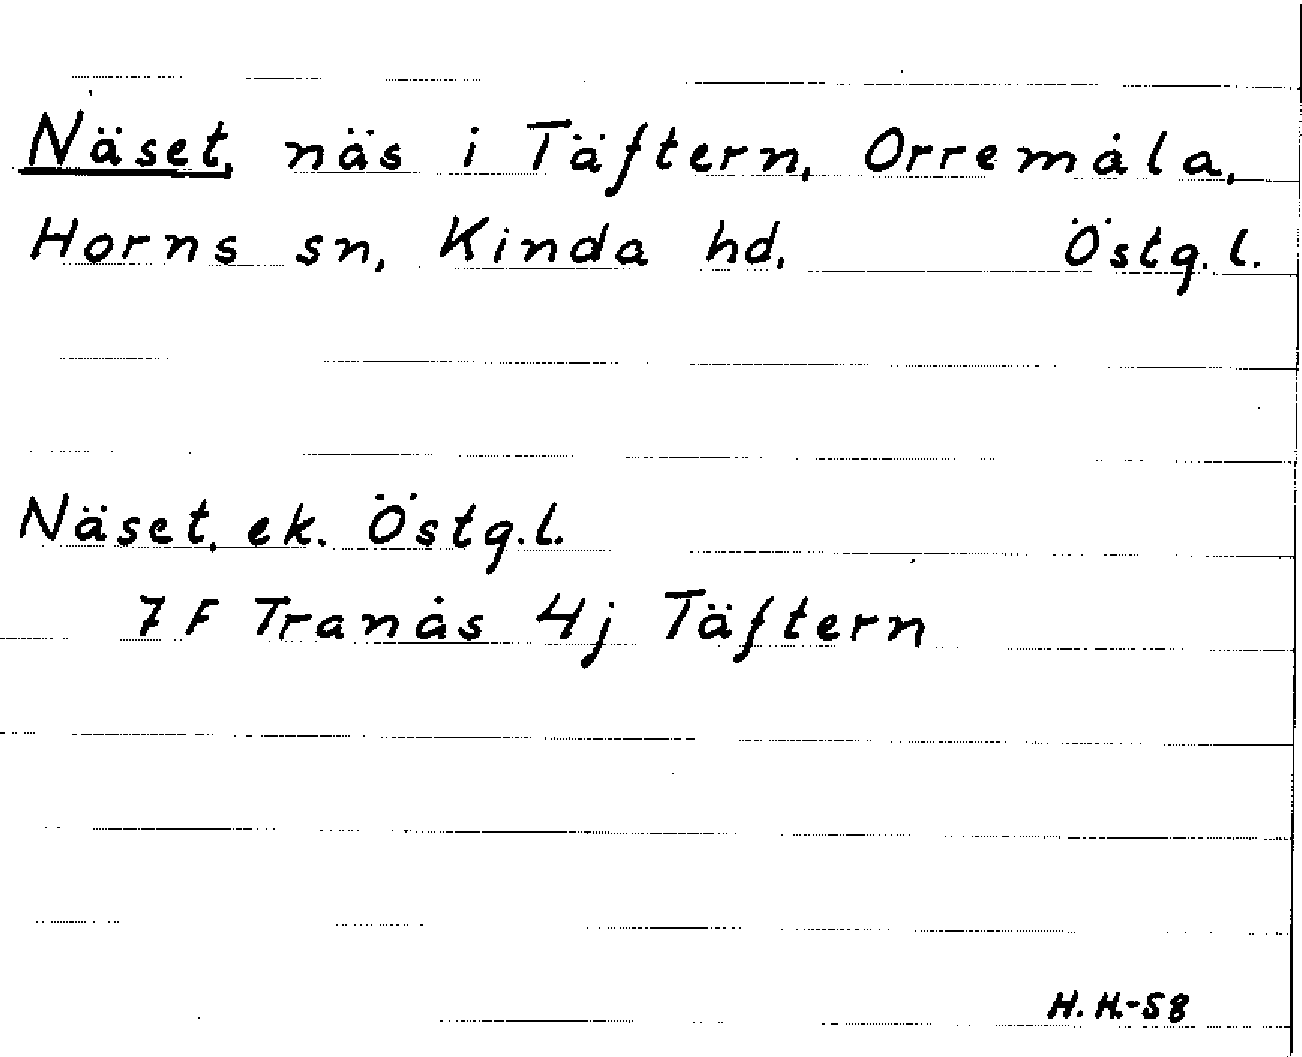 Näset, näs i Täftern, Orremåla,
Horns sn, Kinda hd. Östg. l.
Näset, ek. Östg. l.
7 F Tranås 4j Täftern
H. H.-58